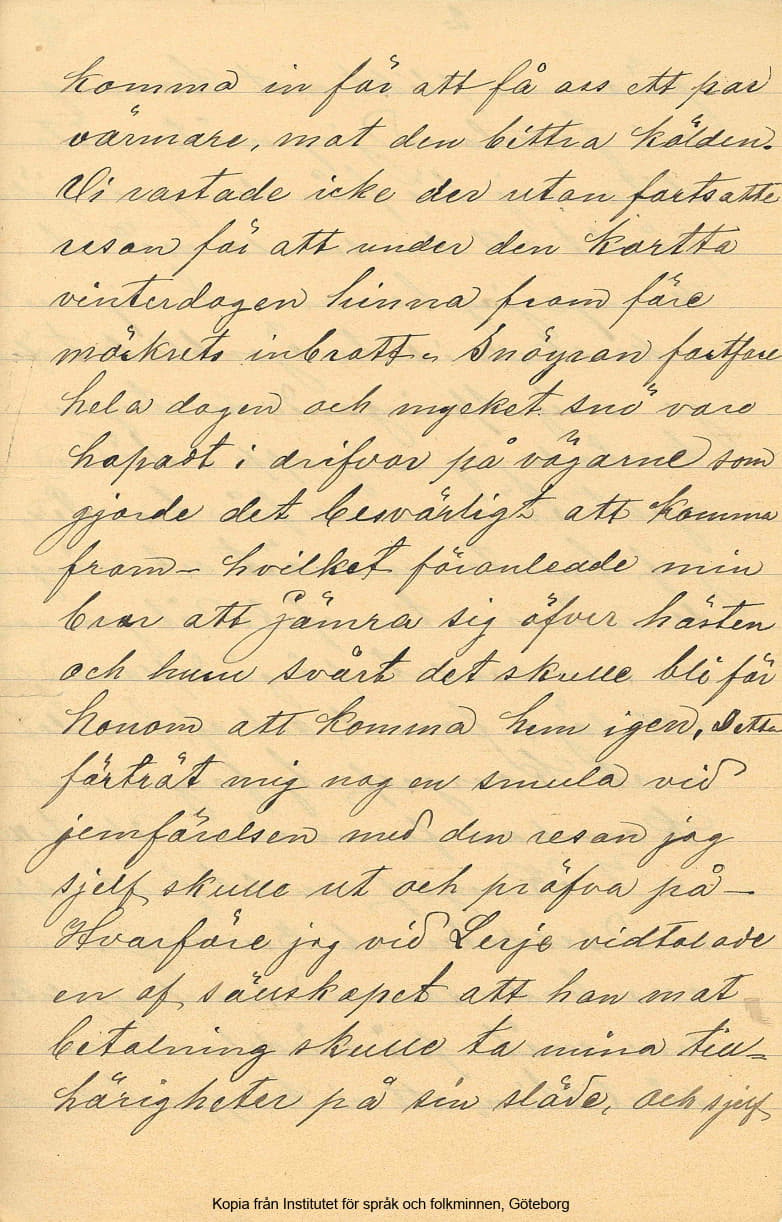 komma in för att få oss ett par
värmare, mot den bittra kölden.
Vi rastade icke der utan fortsatte
resan för att under den kortta
vinterdagen hinna fram före
mörkrets inbrott. Snöyran fortfore
hela dagen och mycket snö vare
hopast i drifvor på vägarne som
gjorde det besvärligt att komma
fram – hvilket föranleade min
bror att jämra sig öfver hästen
och huru svårt det skulle bli för
honom att komma hem igen, Detta
förtröt mig nog en smula vid
jemförelsen med den resan jag
sjelf skulle ut och pröfva på –
Hvarföre jag vid Lerje vidtalade
en af sällskapet att han mot
betalning skulle ta mina till=
hörigheter på sin släde, och sjelf
Kopia från Institutet för språk och folkminnen, Göteborg